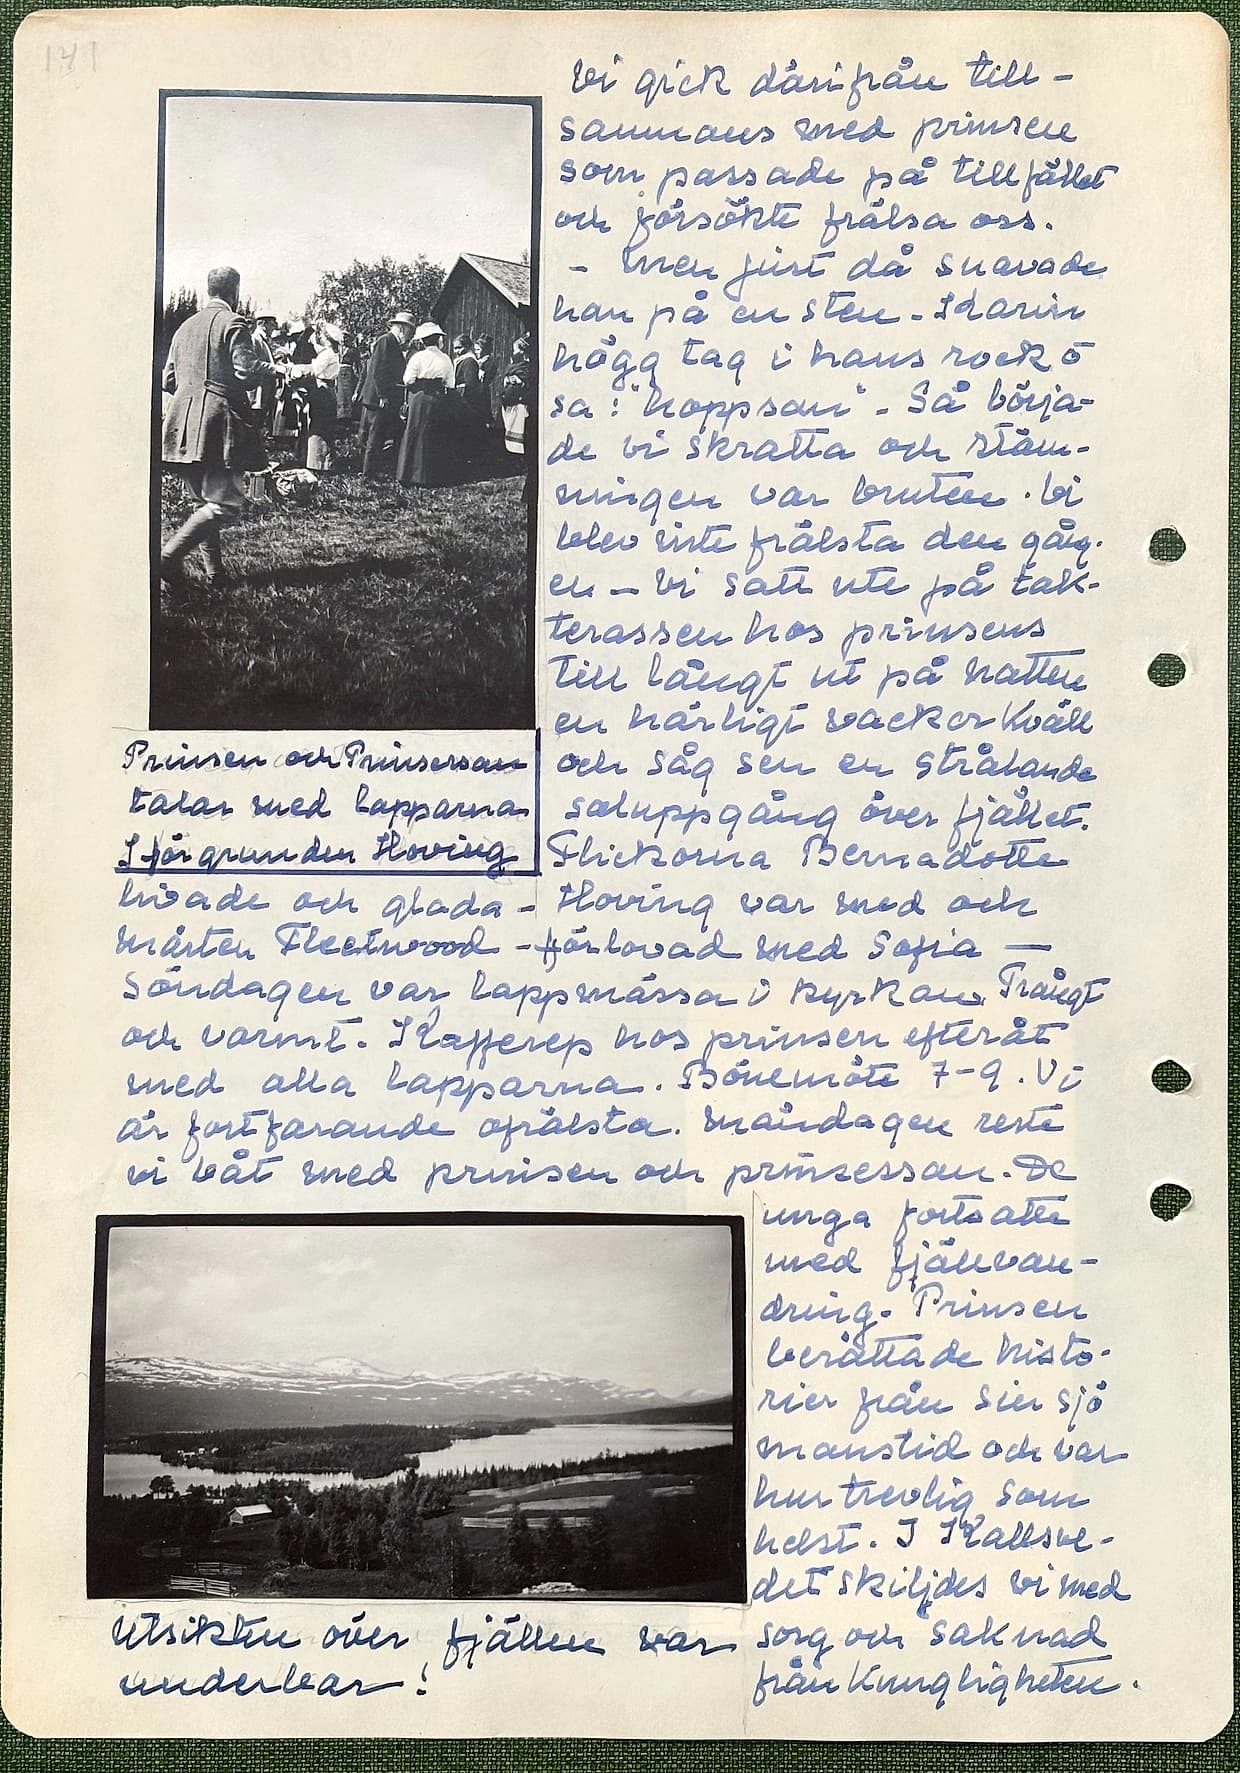 141
Vi gick därifrån till-
sammans med prinsen
som passade på tillfället
och försökte frälsa oss.
- Men just då snavade
han på en sten. Karin
högg tag i hans rock ö
sa: "hoppsan". Så börja-
de vi skratta och stäm-
ningen var bruten. Vi
blev inte frälsta den gång-
en - Vi satt ute på tak-
terassen hos prinsens
till långt ut på natten
en härligt vacker kväll
och såg sen en strålande
soluppgång över fjället.
Prinsen och Prinsessan
talar med lapparna
I förgrunden Hoving
Flickorna Bernadotte
livade och glada - Hoving var med och
Mårten Fleetwood - förlovad med Sofia -
Söndagen var lappmässa i kyrkan. Trångt
och varmt. Kafferep hos prinsen efteråt
med alla lapparna. Bönemöte 7-9. Vi
är fortfarande ofrälsta. Måndagen reste
vi båt med prinsen och prinsessan. De
unga fortsatte
med fjällvan-
dring. Prinsen
berättade histo-
rier från sin sjö
manstid och var
hur trevlig som
helst. I Kallsve-
det skiljdes vi med
sorg och saknad
från Kungligheten.
Utsikten över fjällen var
underbar!